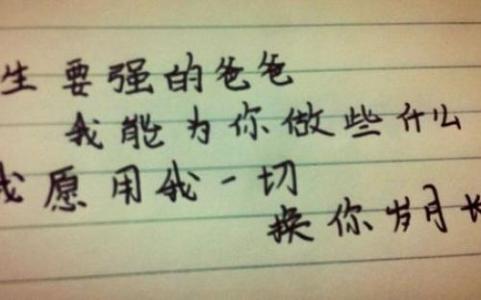 生要强的爸爸
我能为你做些什么
我愿用我一切
换你岁月长